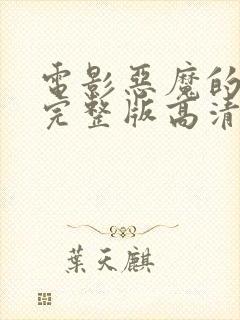 電影惡魔的
完整版高清
葉天麒